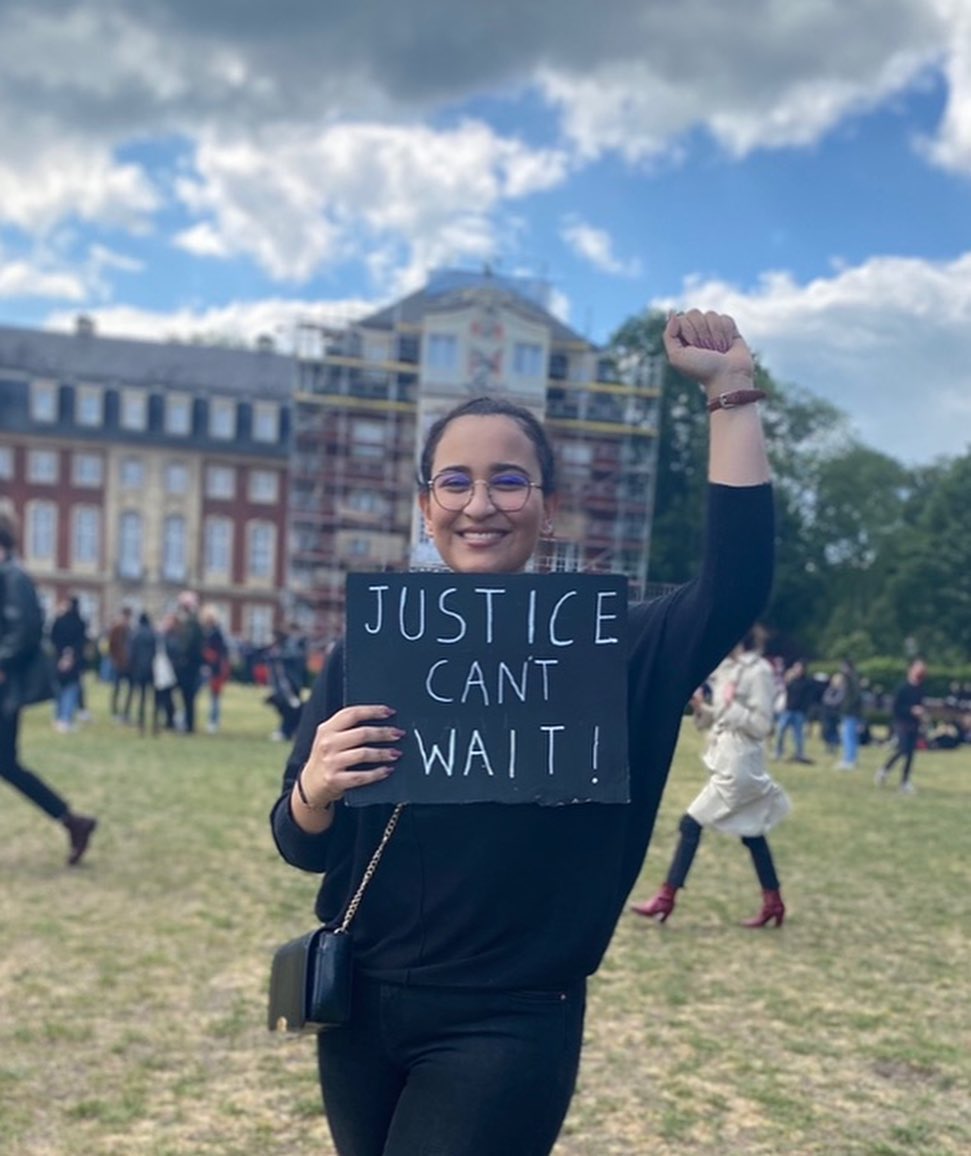 JUSTICE
CAN'T
WAIT!